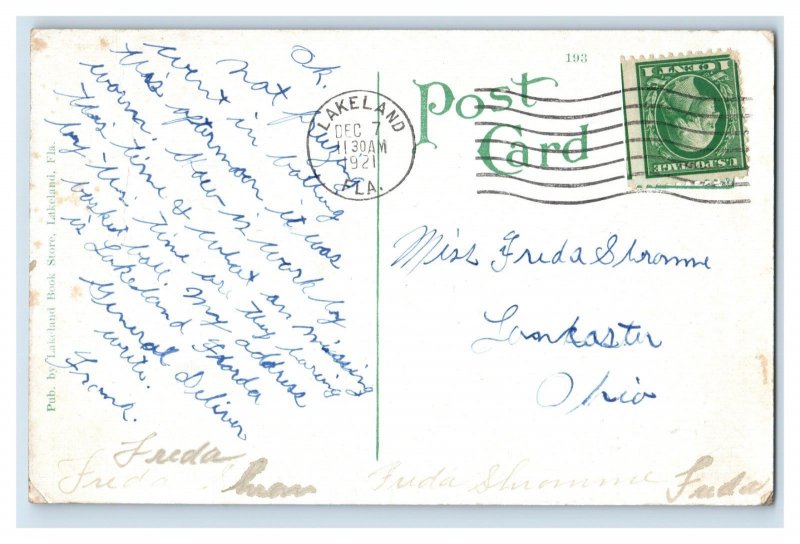 193
Post
Card
LAKELAND
DEC 7
11 30 AM
1921
FLA.
1 CENT 1
U.S. POSTAGE
Ok.
not
went in bathing
this afternoon it was
warm. How is work by
this time & what am missing
by this time are they having
basket ball. My address
is Lakeland Florda
General Deliver
write.
Frank.
Miss Freda Shromme
Lankaster
Ohio
Pub. by Lakeland Book Store, Lakeland, Fla.
Freda
Freda
Freda Shromme
Freda